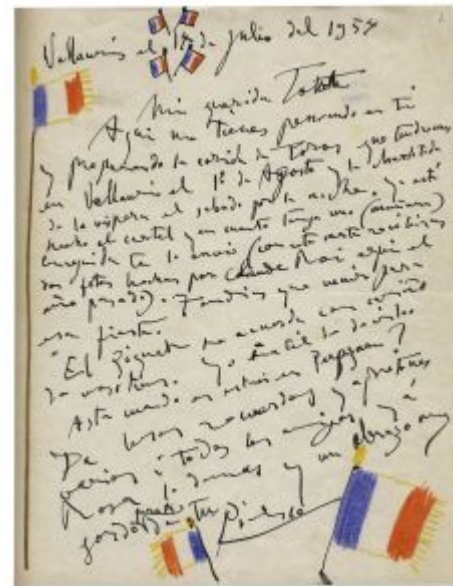 Vallauris el 14 de julio del 1954
Mi querida Totote
Aqui me tienes pensando en ti
y preparando la corrida de Toros que tendremos
en Vallauris el 1º de Agosto y la
de la vispera el sabado por la noche. Ya está
hecho el cartel y en cuanto tenga uno (mañana)
enseguida te lo envio (con esta carta recibiras
dos fotos hechas por Claude Roi aqui el
año pasado). Tendrias que venir para
esa fiesta.
El Piquete se acuerda con cariño
de vosotros. Yo inutil de decirlo.
Asta cuando os estais en Perpignan?
Da besos recuerdos y apretones
varios á todos los amigos y á
Rosa y demas y un abrazo muy
gordo de tu Picasso